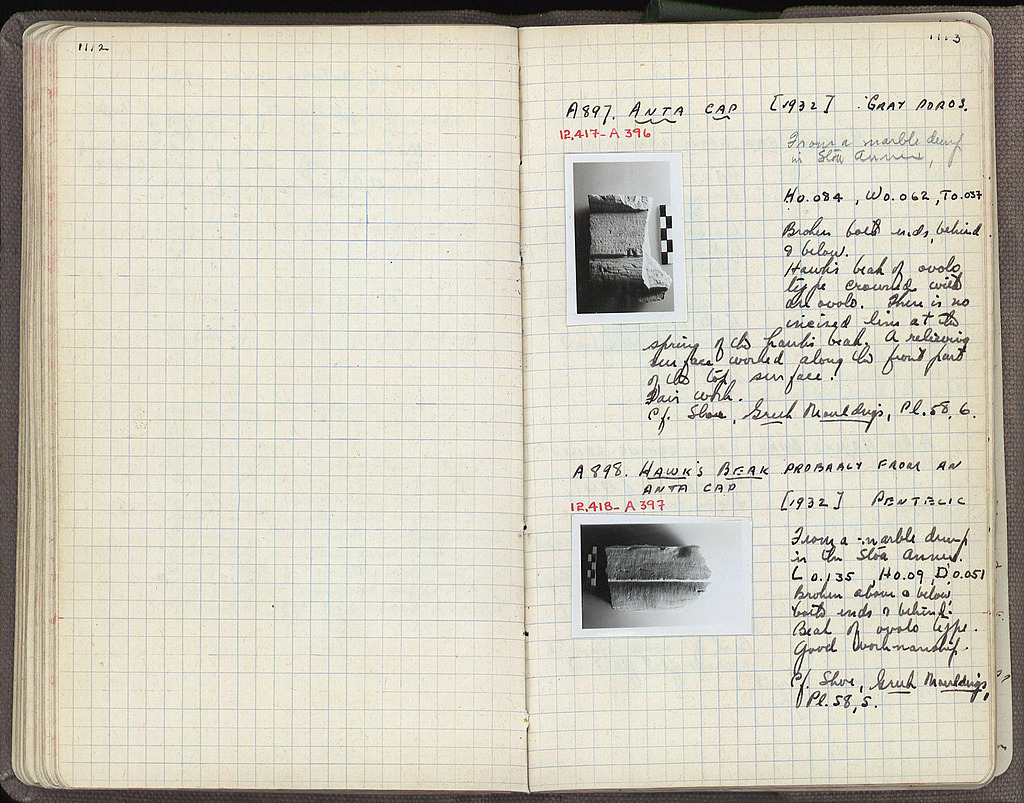 1112
1113
A897. ANTA CAP [1932] GRAY POROS.
12,417-A 396
From a marble dump
in Stoa Annex,
H 0.084, W 0.062, T 0.037
Broken both ends, behind
& below.
Hawk's beak of ovolo
type crowned with
an ovolo. There is no
incised line at the
spring of the hawk's beak. A relieving
surface worked along the front part
of the top surface.
Fair work.
Cf. Shoe, Greek Mouldings, Pl. 58, 6.
A898. HAWK'S BEAK PROBABLY FROM AN
ANTA CAP
12,418-A 397
[1932] PENTELIC
From a marble dump
in the Stoa Annex.
L 0.135, H 0.09, D 0.051
Broken above & below,
both ends & behind.
Beak of ovolo type.
Good workmanship.
Cf. Shoe, Greek Mouldings,
Pl. 58, 5.